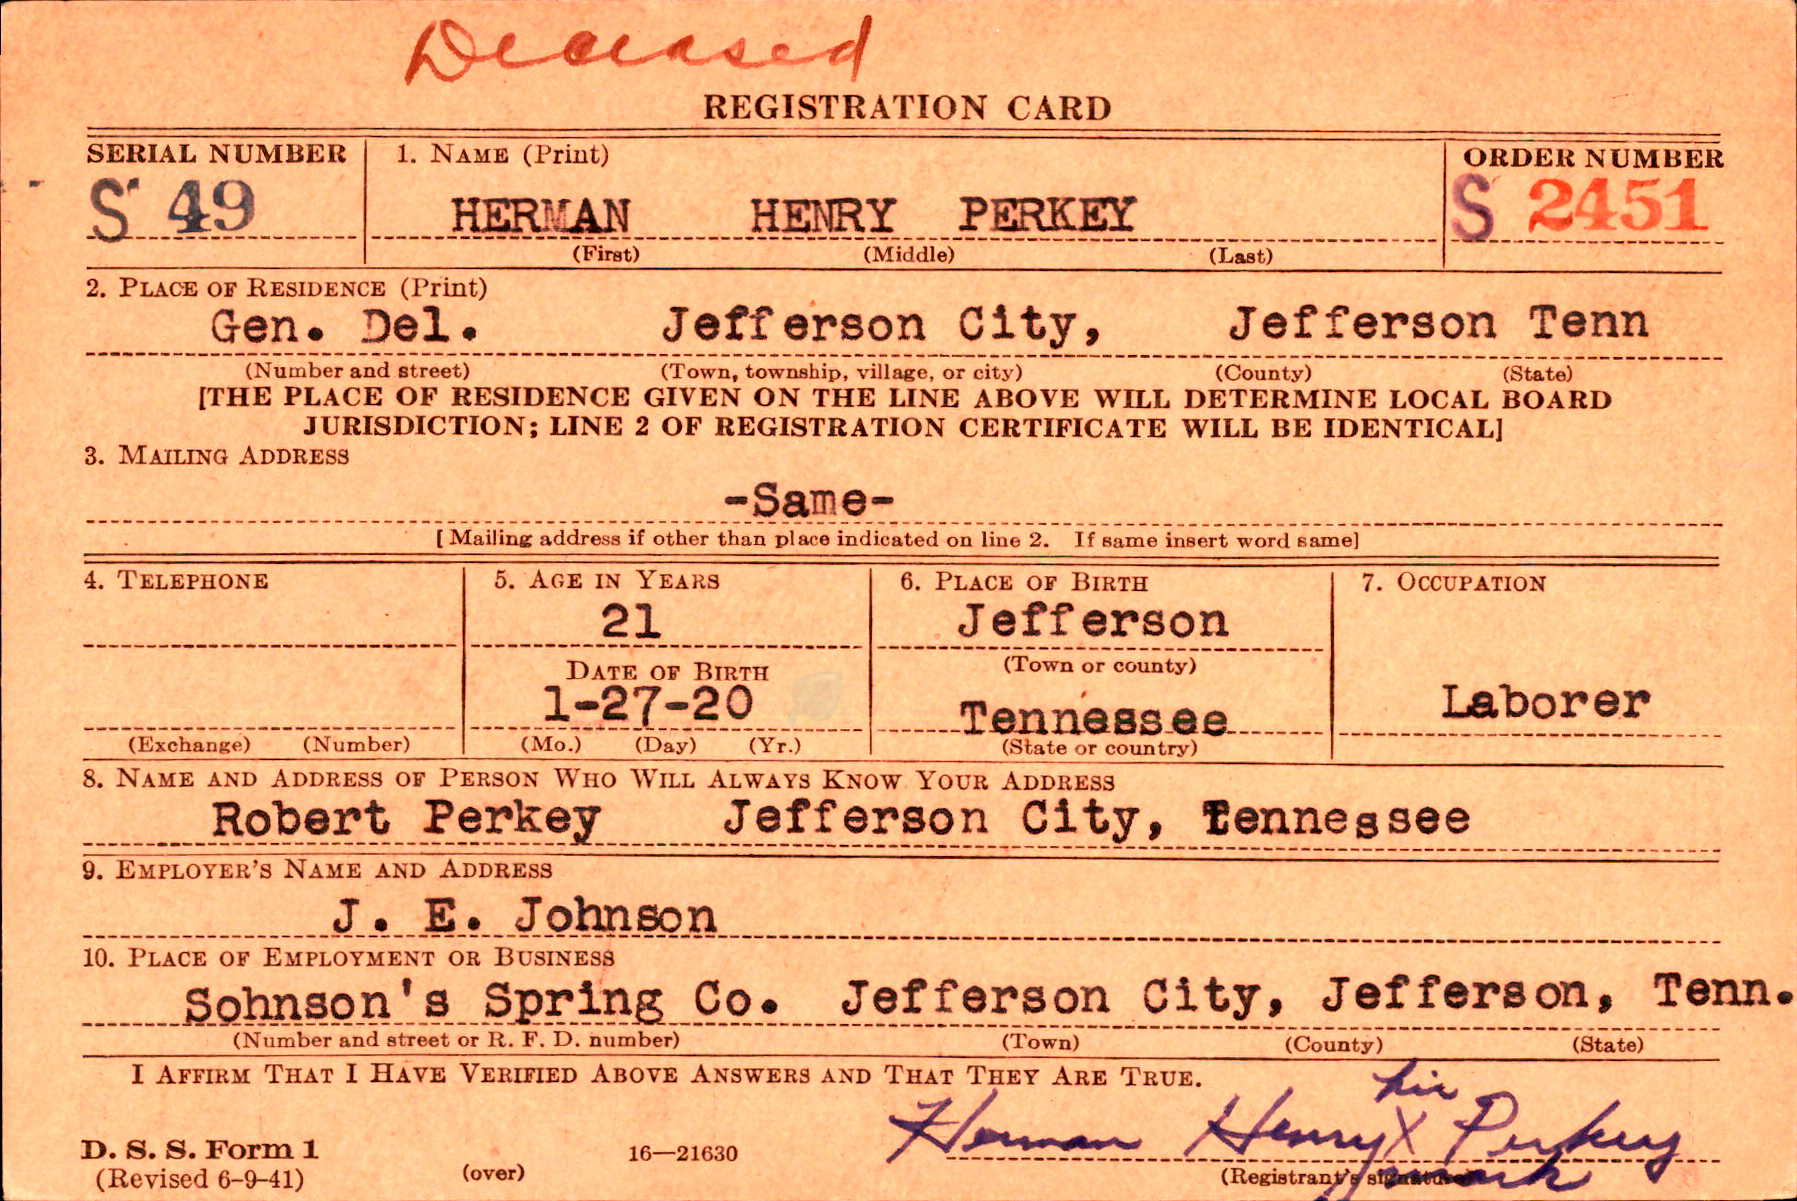 Deceased
REGISTRATION CARD
SERIAL NUMBER 1. NAME (Print) ORDER NUMBER
S 49 HERMAN HENRY PERKEY S 2451
(First) (Middle) (Last)
2. PLACE OF RESIDENCE (Print)
Gen. Del. Jefferson City, Jefferson Tenn
(Number and street) (Town, township, village, or city) (County) (State)
[THE PLACE OF RESIDENCE GIVEN ON THE LINE ABOVE WILL DETERMINE LOCAL BOARD
JURISDICTION; LINE 2 OF REGISTRATION CERTIFICATE WILL BE IDENTICAL]
3. MAILING ADDRESS
-Same-
[Mailing address if other than place indicated on line 2. If same insert word same]
4. TELEPHONE 5. AGE IN YEARS 6. PLACE OF BIRTH 7. OCCUPATION
21 Jefferson
DATE OF BIRTH (Town or county)
1-27-20 Tennessee Laborer
(Exchange) (Number) (Mo.) (Day) (Yr.) (State or country)
8. NAME AND ADDRESS OF PERSON WHO WILL ALWAYS KNOW YOUR ADDRESS
Robert Perkey Jefferson City, Tennessee
9. EMPLOYER'S NAME AND ADDRESS
J. E. Johnson
10. PLACE OF EMPLOYMENT OR BUSINESS
Sohnson's Spring Co. Jefferson City, Jefferson, Tenn.
(Number and street or R. F. D. number) (Town) (County) (State)
I AFFIRM THAT I HAVE VERIFIED ABOVE ANSWERS AND THAT THEY ARE TRUE.
his
Herman Henry X Perkey
mark
D. S. S. Form 1 16—21630
(Revised 6-9-41) (over) (Registrant's signature)